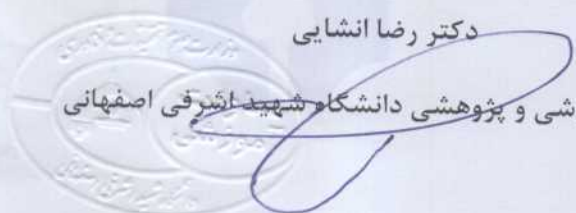 دکتر رضا انشایی
شی و پژوهشی دانشگاه شهید اشرفی اصفهانی